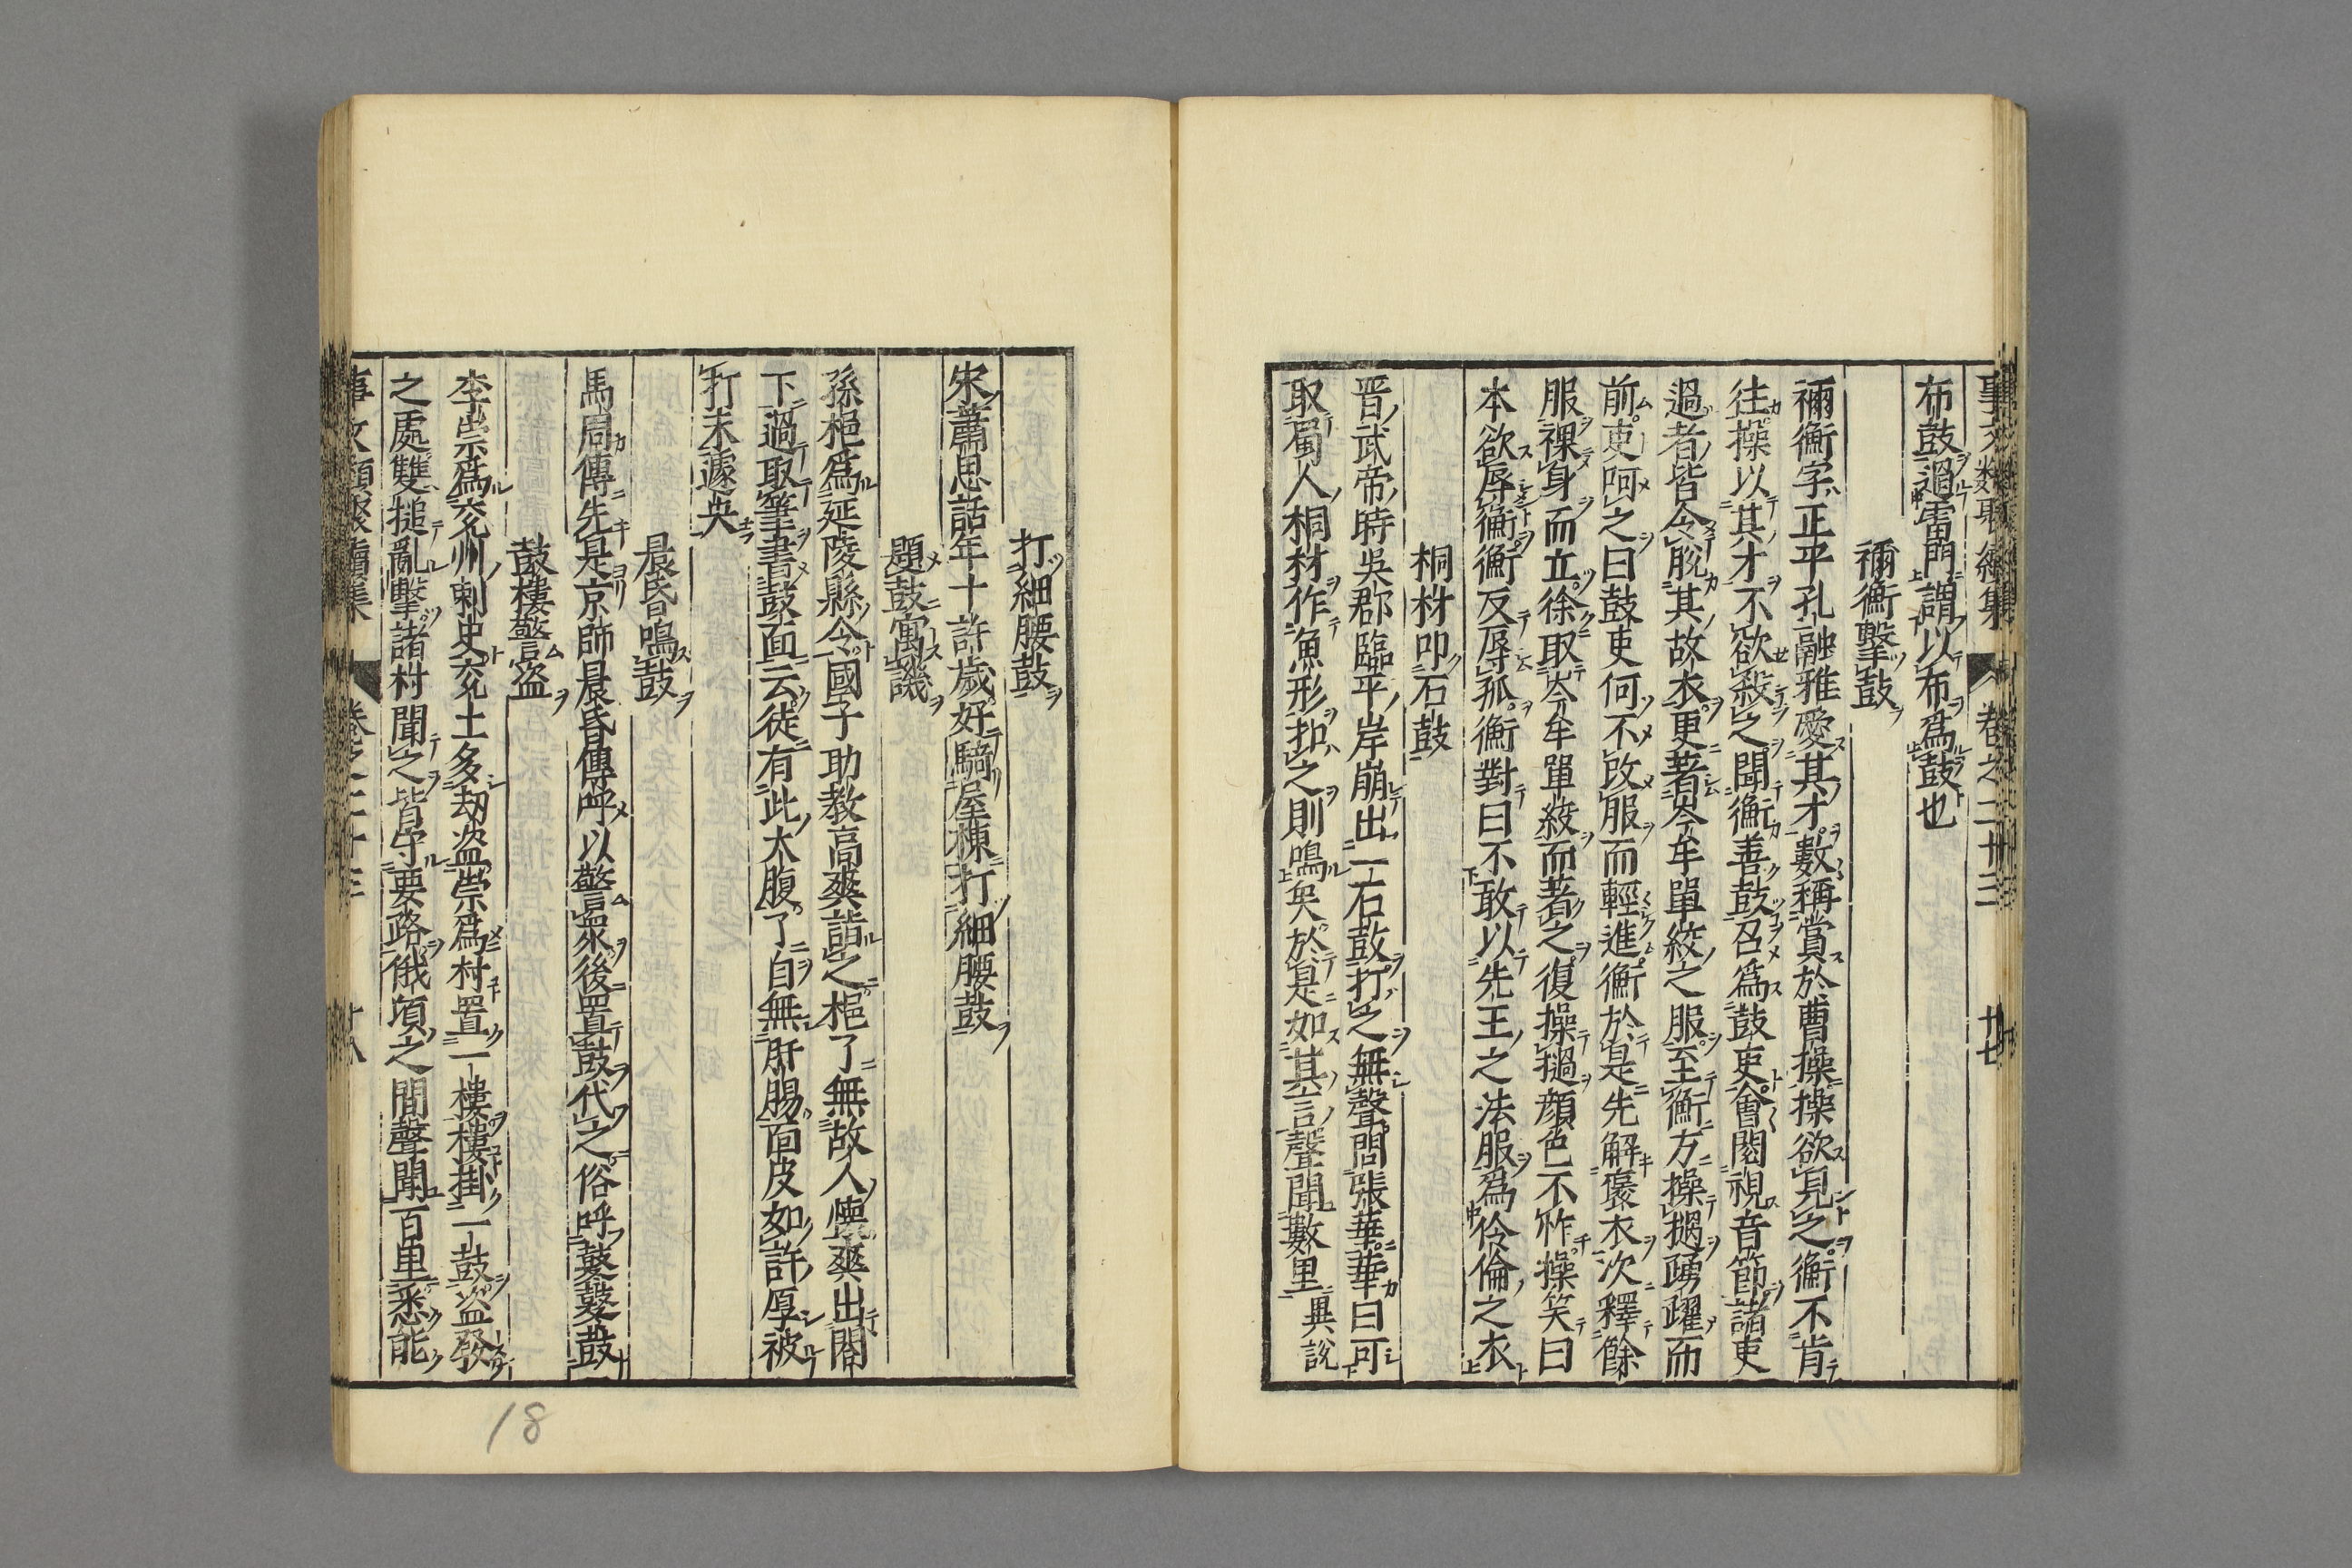 事文類聚續集 卷之二十三 十七
布鼓過雷門謂以布爲鼓也
禰衡擊鼓
禰衡字正平孔融雅愛其才數稱賞於曹操操欲見之衡不肯
往操以其才不欲殺之聞衡善鼓召爲鼓吏會閱視音節諸吏
過者皆令脫其故衣更著岑牟單絞之服至衡方操撾踴躍而
前吏呵之曰鼓吏何不改服而輕進衡於是先解褻衣次釋餘
服裸身而立徐取岑牟單絞而著之復操撾顏色不怍操笑曰
本欲辱衡衡反辱孤衡對曰不敢以先王之法服爲伶倫之衣
桐材叩石鼓
晋武帝時吳郡臨平岸崩出一石鼓打之無聲問張華華曰可
取蜀人桐材作魚形扣之則鳴矣於是如其言聲聞數里 異説
打細腰鼓
宋蕭思話年十許歲好騎屋棟打細腰鼓
題鼓寓譏
孫㧞爲延陵縣令國子助教高爽詣之㧞了無故人懷爽出閤
下過取筆書鼓面云徒有此大腹了自無肝腸面皮如許厚被
打未遽央
晨昏鳴鼓
馬周傳先是京師晨昏傳呼以警衆後置鼓代之俗呼鼕鼕鼓
鼓樓警盗
李崇爲兖州刺史兖土多刧盗崇爲村置一樓樓掛一鼓盗發
之處雙搥亂擊諸村聞之皆守要路俄頃之間聲聞百里悉能
事文類聚續集 卷之二十三 十八
18